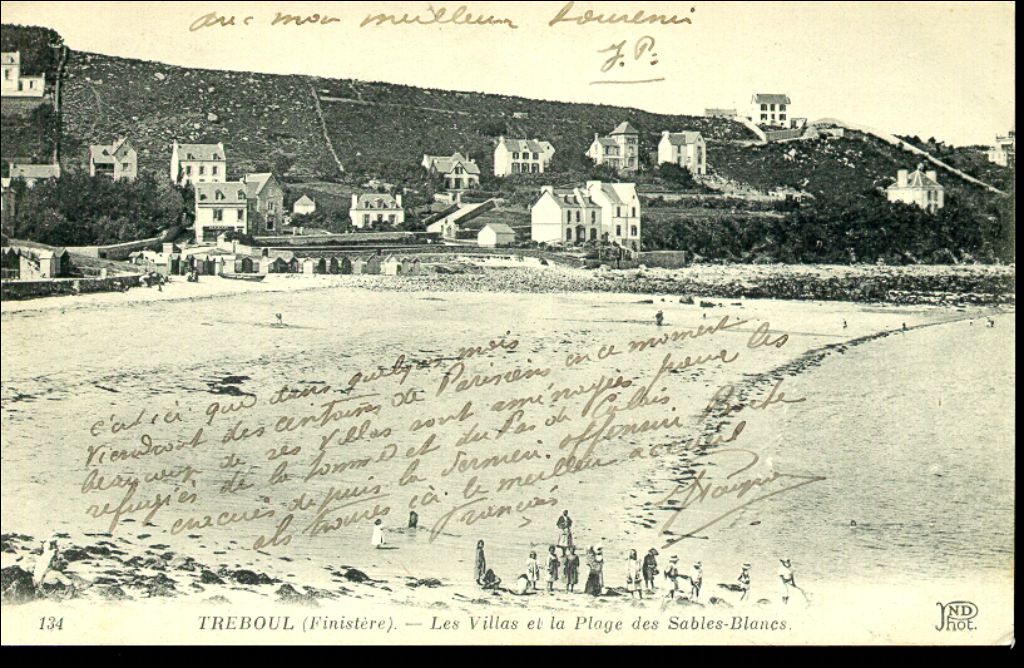 avec mon meilleur souvenir
J. P.
c'est ici que dans quelques mois
viendront des centaines de Parisiens en ce moment
beaucoup de ses villas sont aménagés pour les
refugiés de la Somme et du Pas de Calais
evacués depuis la dernier offensive Boche
als trouves ici le meilleur accueil
français
134 TREBOUL (Finistère). — Les Villas et la Plage des Sables-Blancs.
ND Phot.